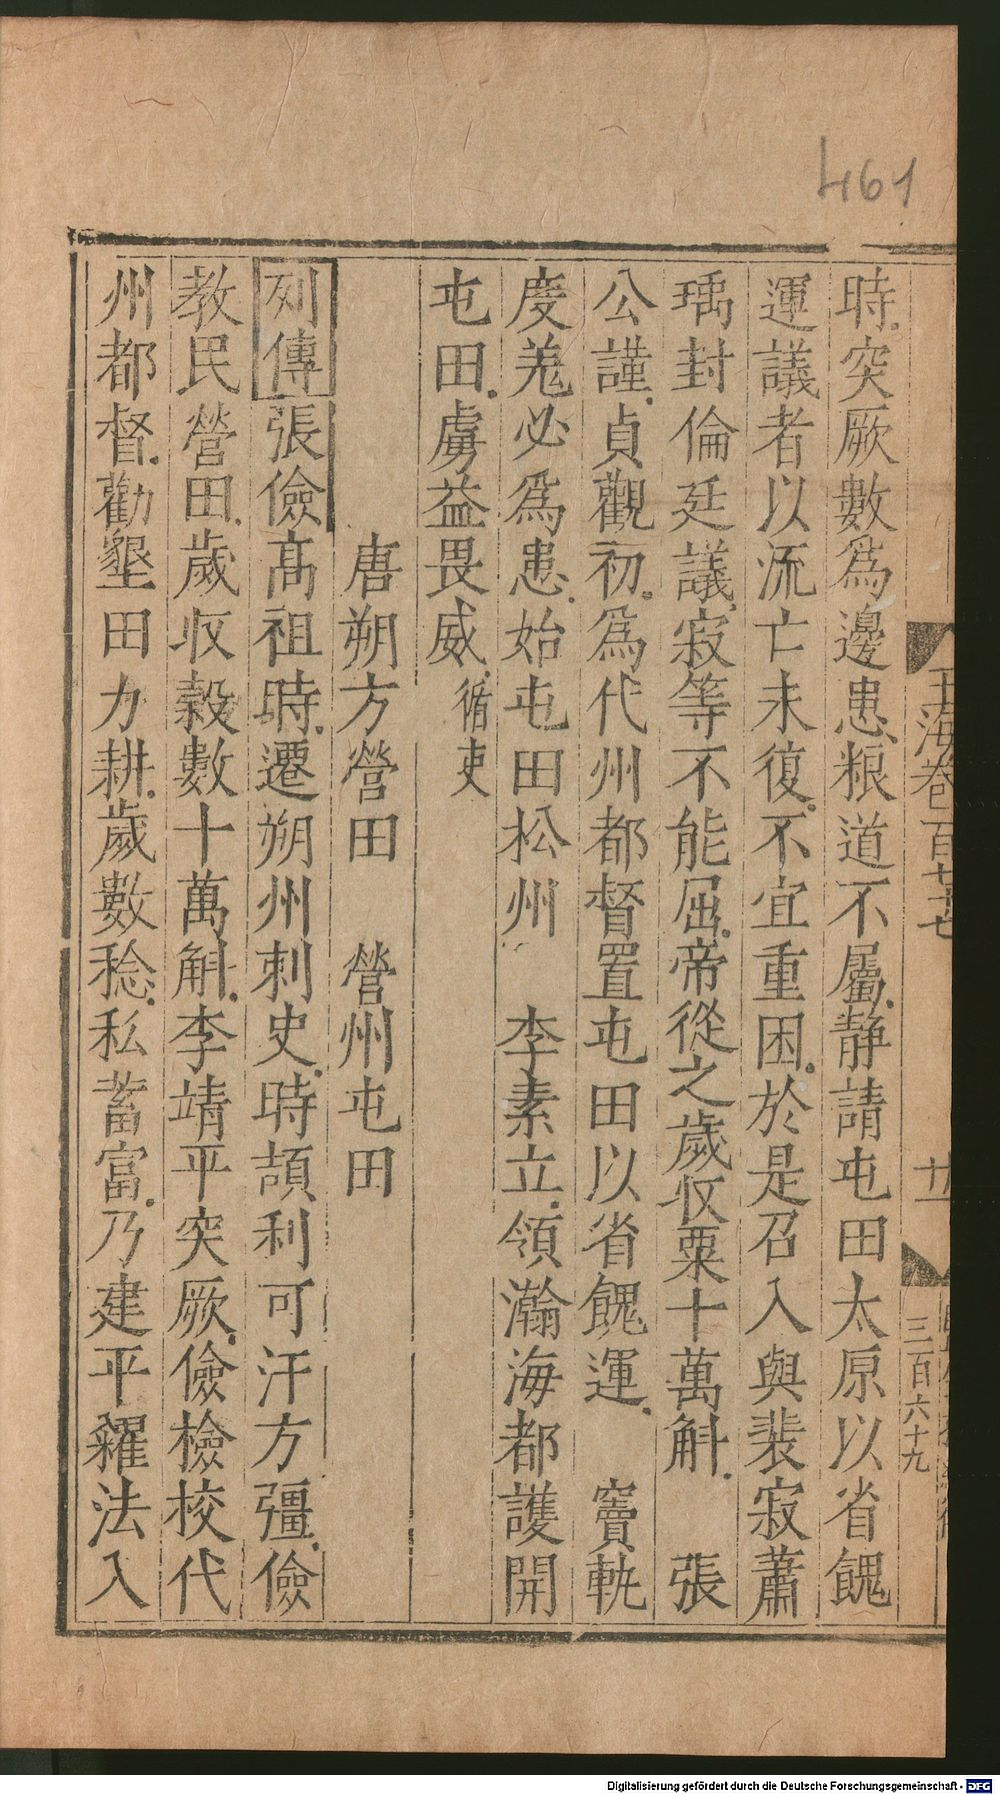 461
時突厥數爲邊患粮道不屬静請屯田太原以省餽
運議者以流亡未復不宜重困於是召入與裴寂蕭
瑀封倫廷議寂等不能屈帝從之歲收粟十萬斛　張
公謹貞觀初爲代州都督置屯田以省餽運　竇軌
度羗必爲患始屯田松州　李素立領瀚海都護開
屯田虜益畏威循吏
唐朔方營田　營州屯田
列傳張儉高祖時遷朔州刺史時頡利可汗方彊儉
教民營田歲收榖數十萬斛李靖平突厥儉檢校代
州都督勸墾田力耕歲數稔私蓄富乃建平糴法入
玉海卷一百七十七
十一
三百六十九
Digitalisierung gefördert durch die Deutsche Forschungsgemeinschaft - DFG